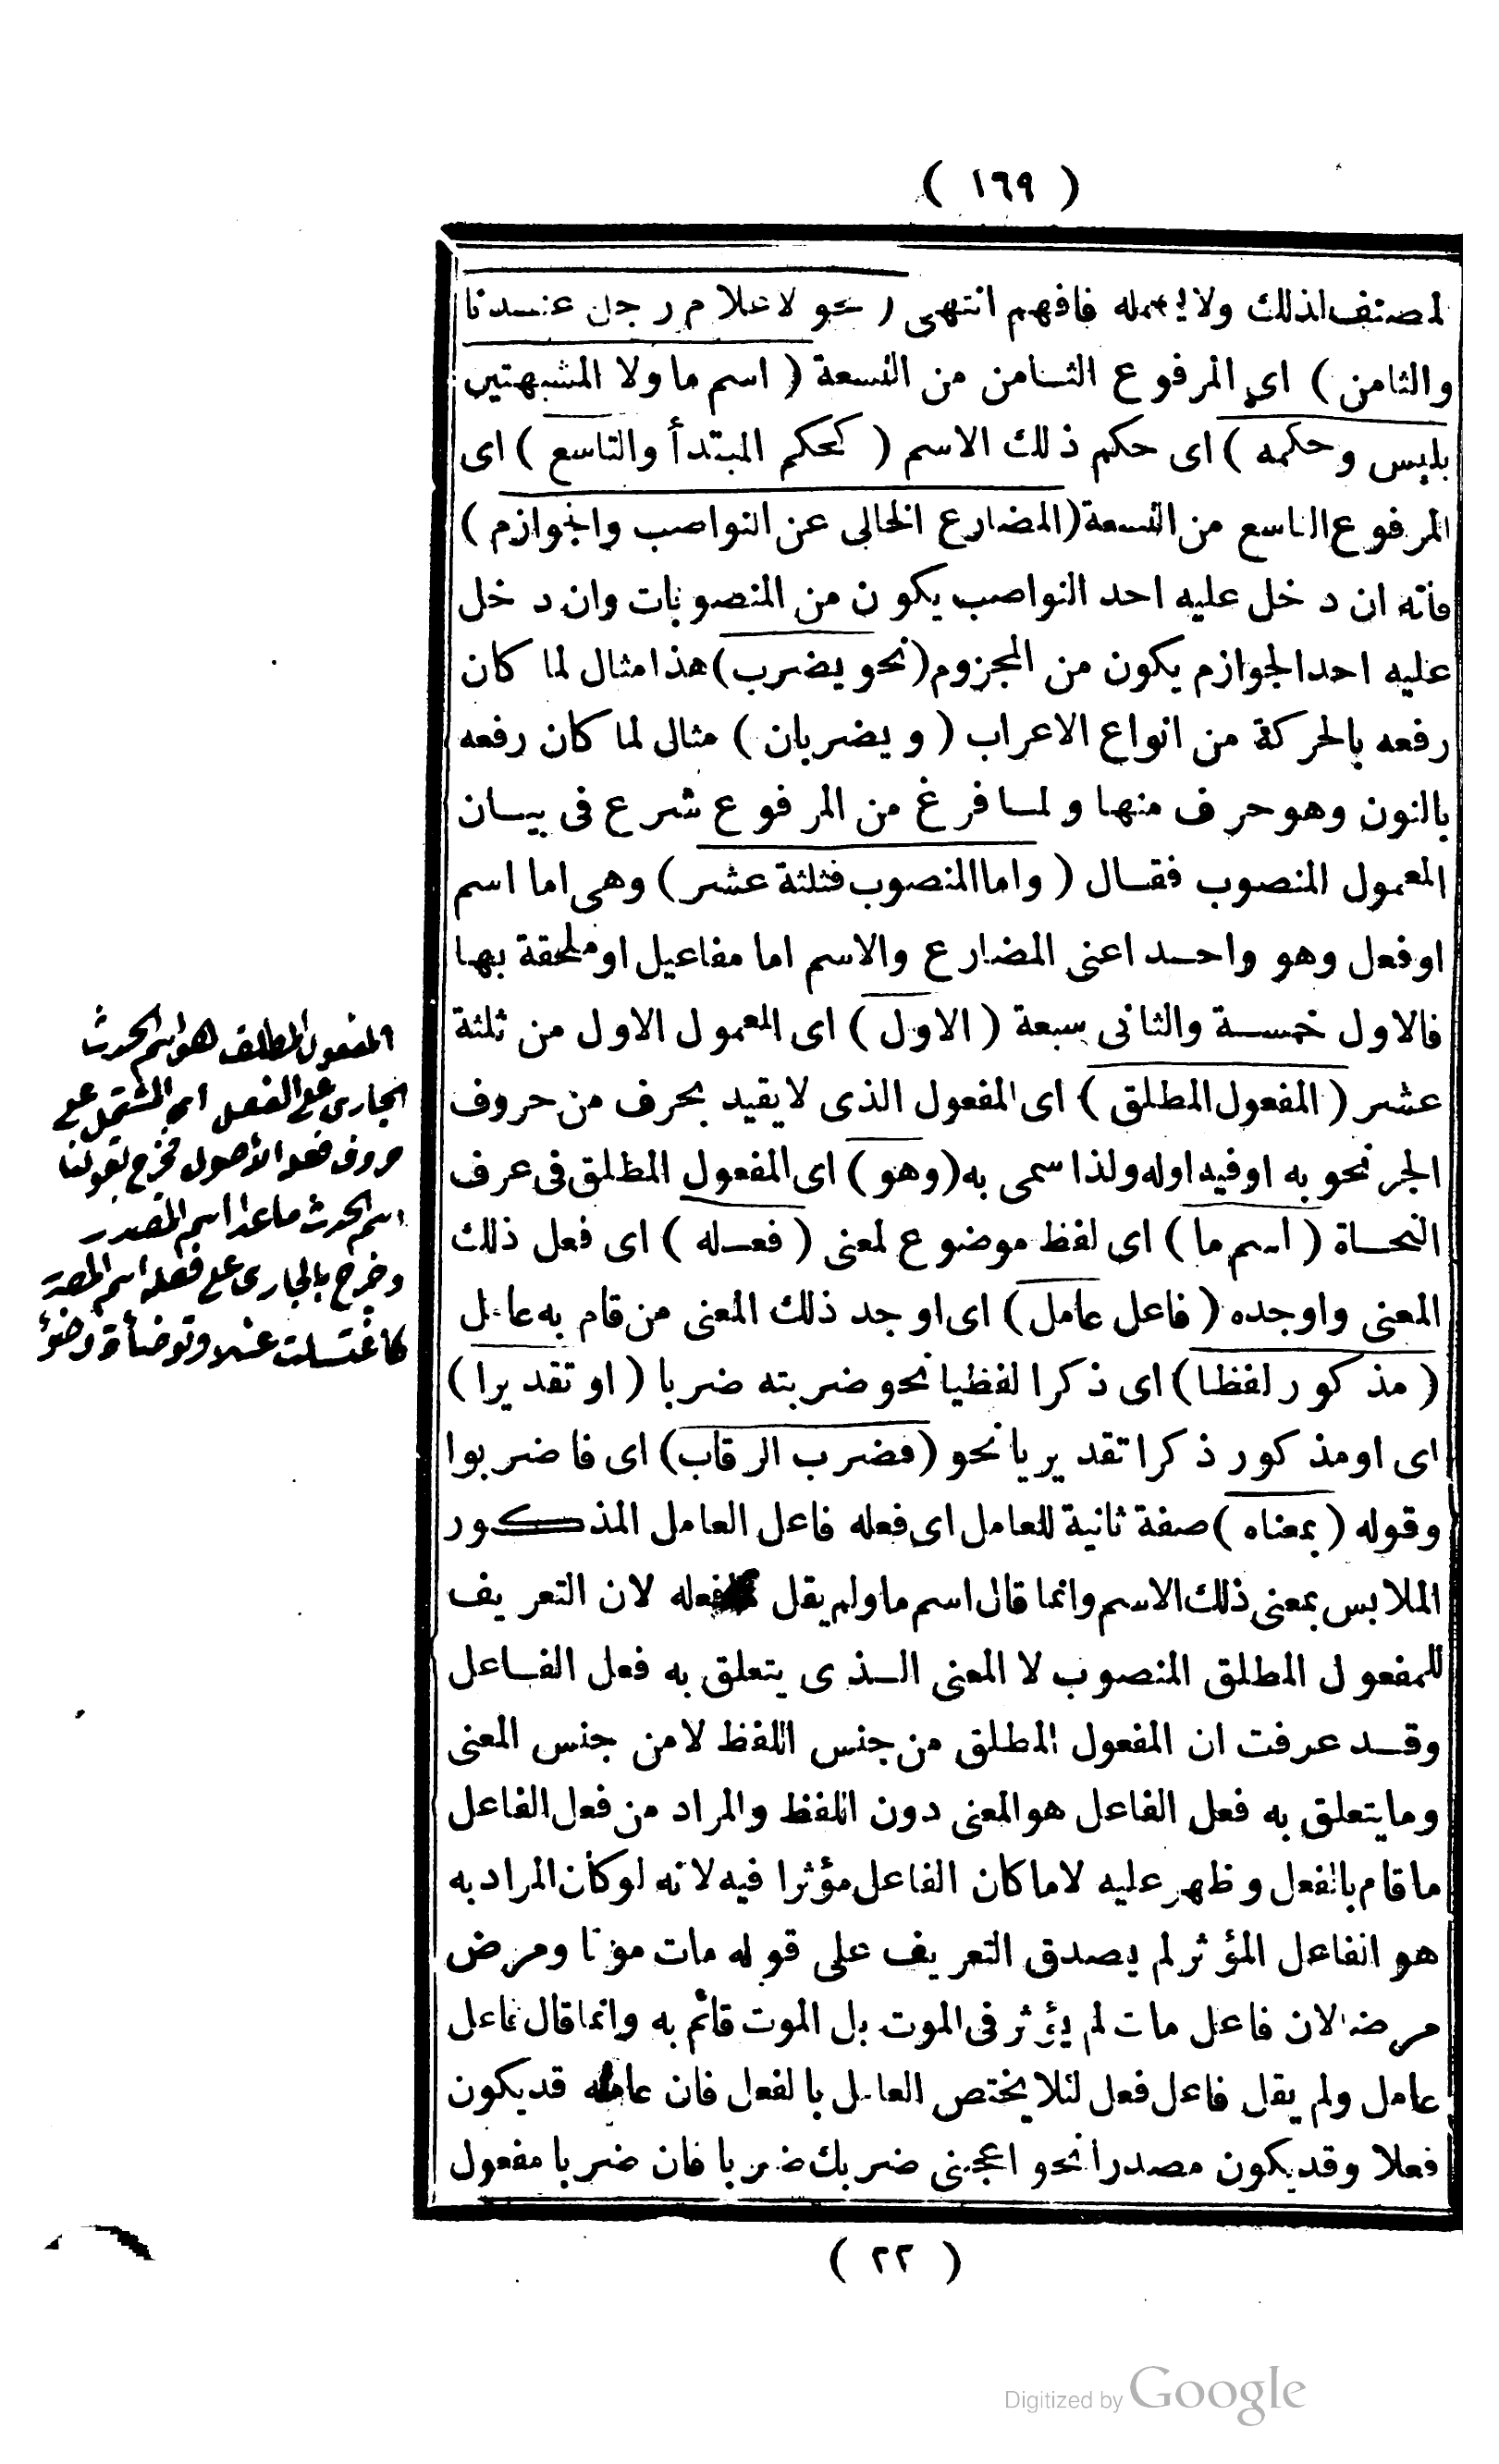 ( ١٦٩ )
لمصنف لذلك ولا يهمله فافهم انتهى ( نحو لا غلام رجل عندنا
والثامن ) اى المرفوع الثامن من التسعة ( اسم ما ولا المشبهتين
بليس وحكمه ) اى حكم ذلك الاسم ( كحكم المبتدأ والتاسع ) اى
المرفوع التاسع من التسعة ( المضارع الخالى عن النواصب والجوازم )
فانه ان دخل عليه احد النواصب يكون من المنصوبات وان دخل
عليه احد الجوازم يكون من المجزوم ( نحو يضرب ) هذا مثال لما كان
رفعه بالحركة من انواع الاعراب ( ويضربان ) مثال لما كان رفعه
بالنون وهو حرف منها ولما فرغ من المرفوع شرع فى بيان
المعمول المنصوب فقال ( واما المنصوب فثلثة عشر ) وهى اما اسم
او فعل وهو واحد اعنى المضارع والاسم اما مفاعيل او ملحقة بها
فالاول خمسة والثانى سبعة ( الاول ) اى المعمول الاول من ثلثة
عشر ( المفعول المطلق ) اى المفعول الذى لا يقيد بحرف من حروف
الجر نحو به او فيه او له ولذا سمى به ( وهو ) اى المفعول المطلق فى عرف
النحاة ( اسم ما ) اى لفظ موضوع لمعنى ( فعله ) اى فعل ذلك
المعنى واوجده ( فاعل عامل ) اى اوجد ذلك المعنى من قام به عامل
( مذكور لفظا ) اى ذكرا لفظيا نحو ضربته ضربا ( او تقديرا )
اى او مذكور ذكرا تقديريا نحو ( فضرب الرقاب ) اى فاضربوا
وقوله ( بمعناه ) صفة ثانية للعامل اى فعله فاعل العامل المذكور
الملابس بمعنى ذلك الاسم وانما قال اسم ما ولم يقل فعله لان التعريف
للمفعول المطلق المنصوب لا المعنى الذى يتعلق به فعل الفاعل
وقد عرفت ان المفعول المطلق من جنس اللفظ لا من جنس المعنى
وما يتعلق به فعل الفاعل هو المعنى دون اللفظ والمراد من فعل الفاعل
ما قام بالفعل وظهر عليه لا ما كان الفاعل مؤثرا فيه لانه لو كان المراد به
هو الفاعل المؤثر لم يصدق التعريف على قوله مات موتا ومرض
مرضا لان فاعل مات لم يؤثر فى الموت بل الموت قائم به وانما قال فاعل
عامل ولم يقل فاعل فعل لئلا يختص العامل بالفعل فان عامله قد يكون
فعلا وقد يكون مصدرا نحو اعجبنى ضربك ضربا فان ضربا مفعول
( ٢٢ )
المفعول المطلق هو اسم الحدث
الجارى على الفعل اى المشتمل على
حروف فعله الأصول فخرج بقولنا
اسم الحدث ما عدا اسم المصدر
وخرج بالجارى على فعله اسم المصدر
كاغتسلت غسلا وتوضأت وضوء
Digitized by Google